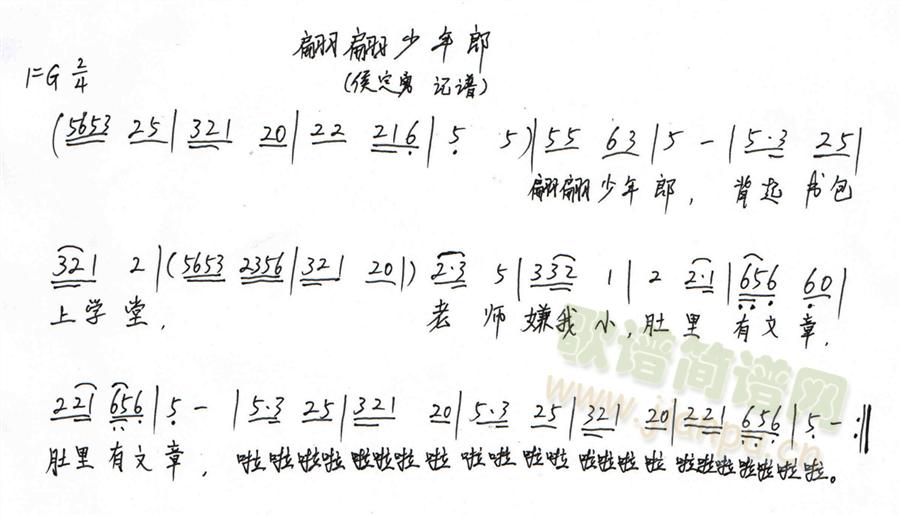 翩翩少年郎
1=G 2/4
(侯定勇 记谱)
(5653 25|321 20|22 216|5 5)|55 63|5 -|5·3 25|
翩翩少年郎, 背起书包
321 2|(5653 2356|321 20|) 2·3 5|332 1|2 2·1|656 60|
上学堂, 老师嫌我小,肚里有文章,
221 656|5 - |5·3 25|321 20|5·3 25|321 20|221 656|5 -:||
肚里有文章, 啦啦啦啦啦啦啦啦啦啦啦啦啦啦啦啦啦啦啦啦啦啦啦。
歌谱简谱网
www.jianpu.cn